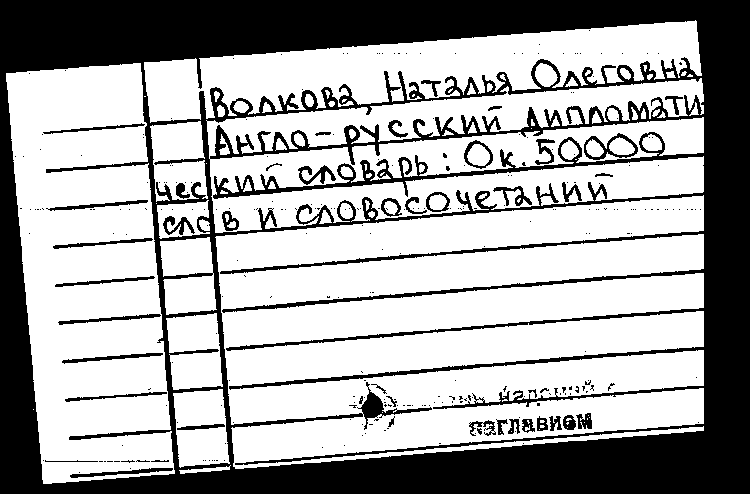 Волкова, Наталья Олеговна
Англо-русский дипломати-
ческий словарь: Ок. 50000
слов и словосочетаний
заглавием